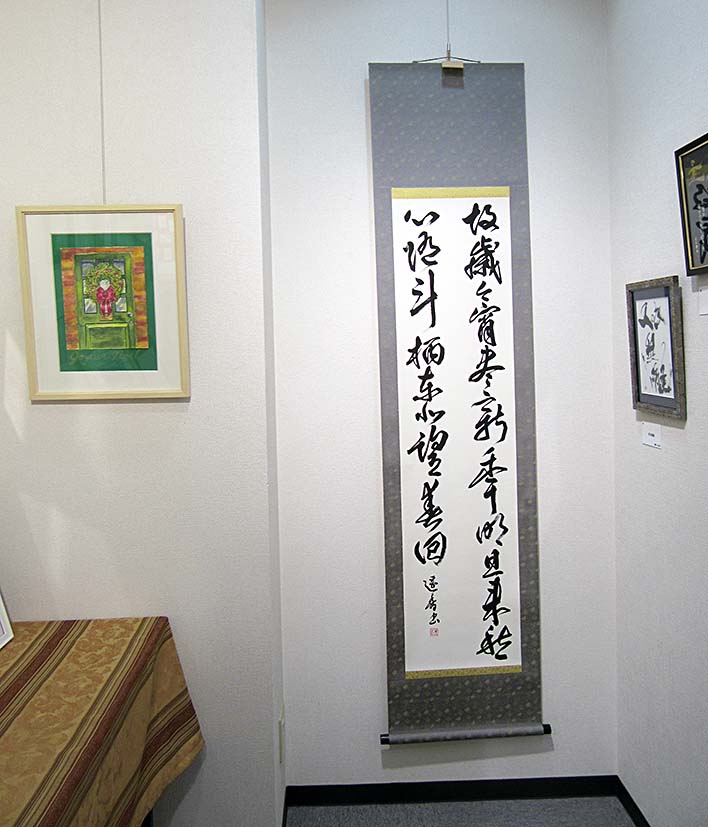 故歳今宵尽新年明旦来愁
心随斗柄東北望春回
Joyeux Noël